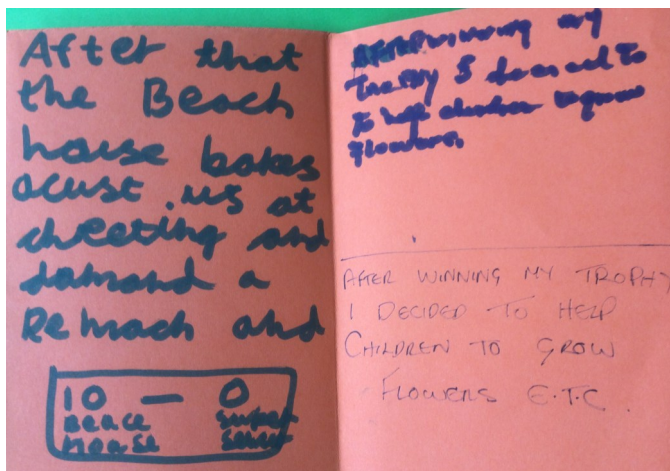 After that
the Beach
house bakes
acust us at
cheeting and
damand a
Remach and
10 — 0
Beace
House
Super
AFTER winning my
Trophy I
to help
Flowers.
AFTER WINNING MY TROPHY
I DECIDED TO HELP
CHILDREN TO GROW
FLOWERS E.T.C.